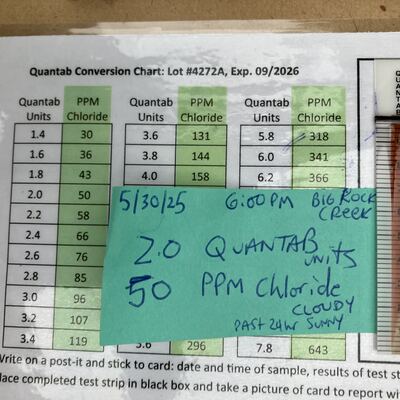 Quantab Conversion Chart: Lot #4272A, Exp. 09/2026
Quantab Units PPM Chloride Quantab Units PPM Chloride Quantab Units PPM Chloride
1.4 30 3.6 131 5.8 318
1.6 36 3.8 144 6.0 341
1.8 43 4.0 158 6.2 366
2.0 50
2.2 58
2.4 66
2.6 76
2.8 85
3.0 96
3.2 107
3.4 119 5.6 296 7.8 643
5/30/25 6:00 PM BIG ROCK CREEK
2.0 QUANTAB UNITS
50 PPM Chloride
CLOUDY
PAST 24HR SUNNY
Write on a post-it and stick to card: date and time of sample, results of test st
lace completed test strip in black box and take a picture of card to report wi
QUANTAB